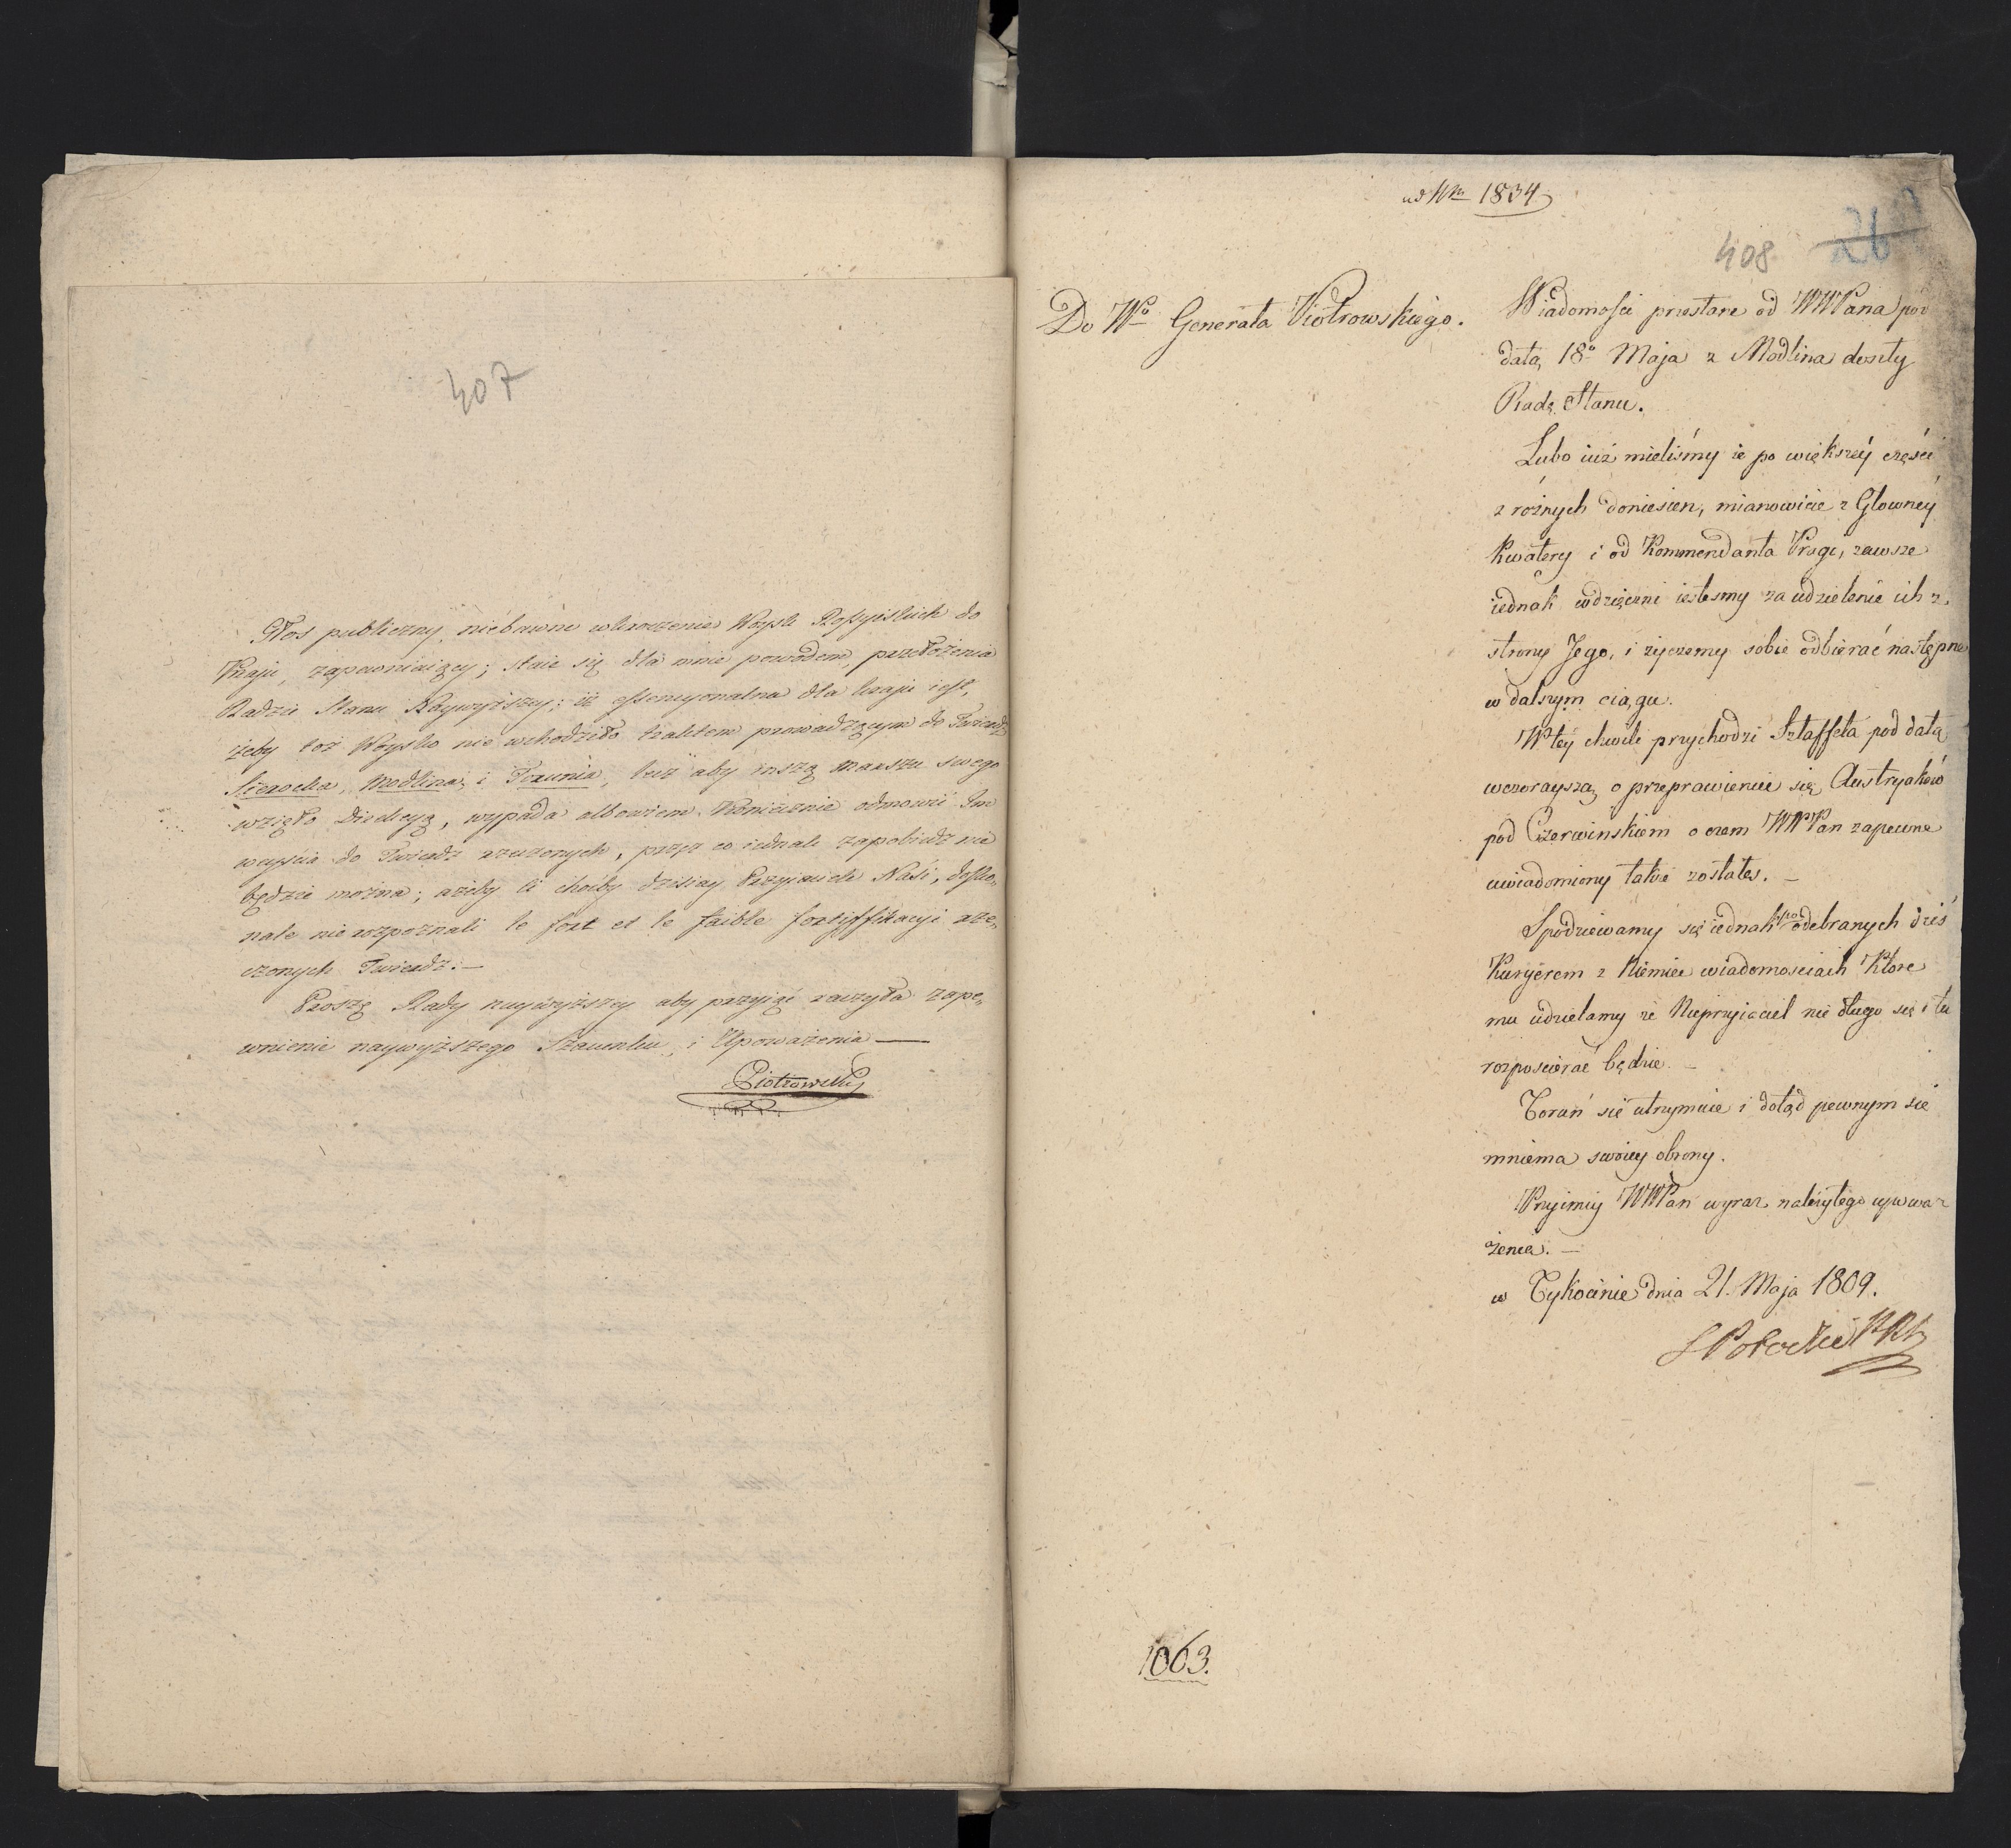 407
Głos publiczny, niebawne wkroczenie Woysk Rossyiskich do
Kraju, zapewniaiący; staie się dla mnie powodem, przełożenia
Radzie Stanu Naywyższey; iż essencyonalna dla kraju iest,
żeby toż Woysko nie wchodziło traktem prowadzącym do Twierdz
Sierocka, Modlina, i Torunia, lecz aby inszą marszu swego
wzięło Direkcyą, wypada albowiem koniecznie odmowić Im
weyścia do Twierdz rzeczonych, przez co iednak zapobiedz nie
będzie można; ażeby ci choćby dzisiay Przyiaciele Naśi, dosko„
nale nie rozpoznali le fort et le faible fortyffikacyi rze„
czonych Twierdz.—
Proszę Rady naywyższey aby przyiąć raczyła zape„
wnienie naywyższego Szacunku, i Upoważenia—
Piotrowski
ad Nrm 1834
408
26
Do Wo Generała Piotrowskiego.
Wiadomości przesłane od WWPana pod
datą 18o Maja z Modlina doszły
Radę Stanu.
Lubo iuż mieliśmy ie po większéy części
z rożnych doniesien, mianowicie z Głowney
Kwatery i od Kommendanta Pragi, zawsze
iednak wdzięczni iestesmy za udzielenie ich z
strony Jego, i życzemy sobie odbierać następne
w dalszym ciągu.
W tey chwili przychodzi Sztaffeta pod datą
wczorayszą o przeprawieniu się Austryaków
pod Czerwinskiem o czem WWPan zapewne
uwiadomiony także zostałes. —
Spodziewamy się iednak po odebranych dziś
Kuryerem z Niemiec wiadomosciach Ktore
mu udzielamy że Nieprzyiaciel nie długo się i tu
rozpościerać będzie. —
Toruń się utrzymuie i dotąd pewnym się
mniema swoiey obrony.
Przyimiy WWPan wyraz należytego upowa-
żenia. —
w Tykocinie dnia 21. Maja 1809.
S Potocki
1063.